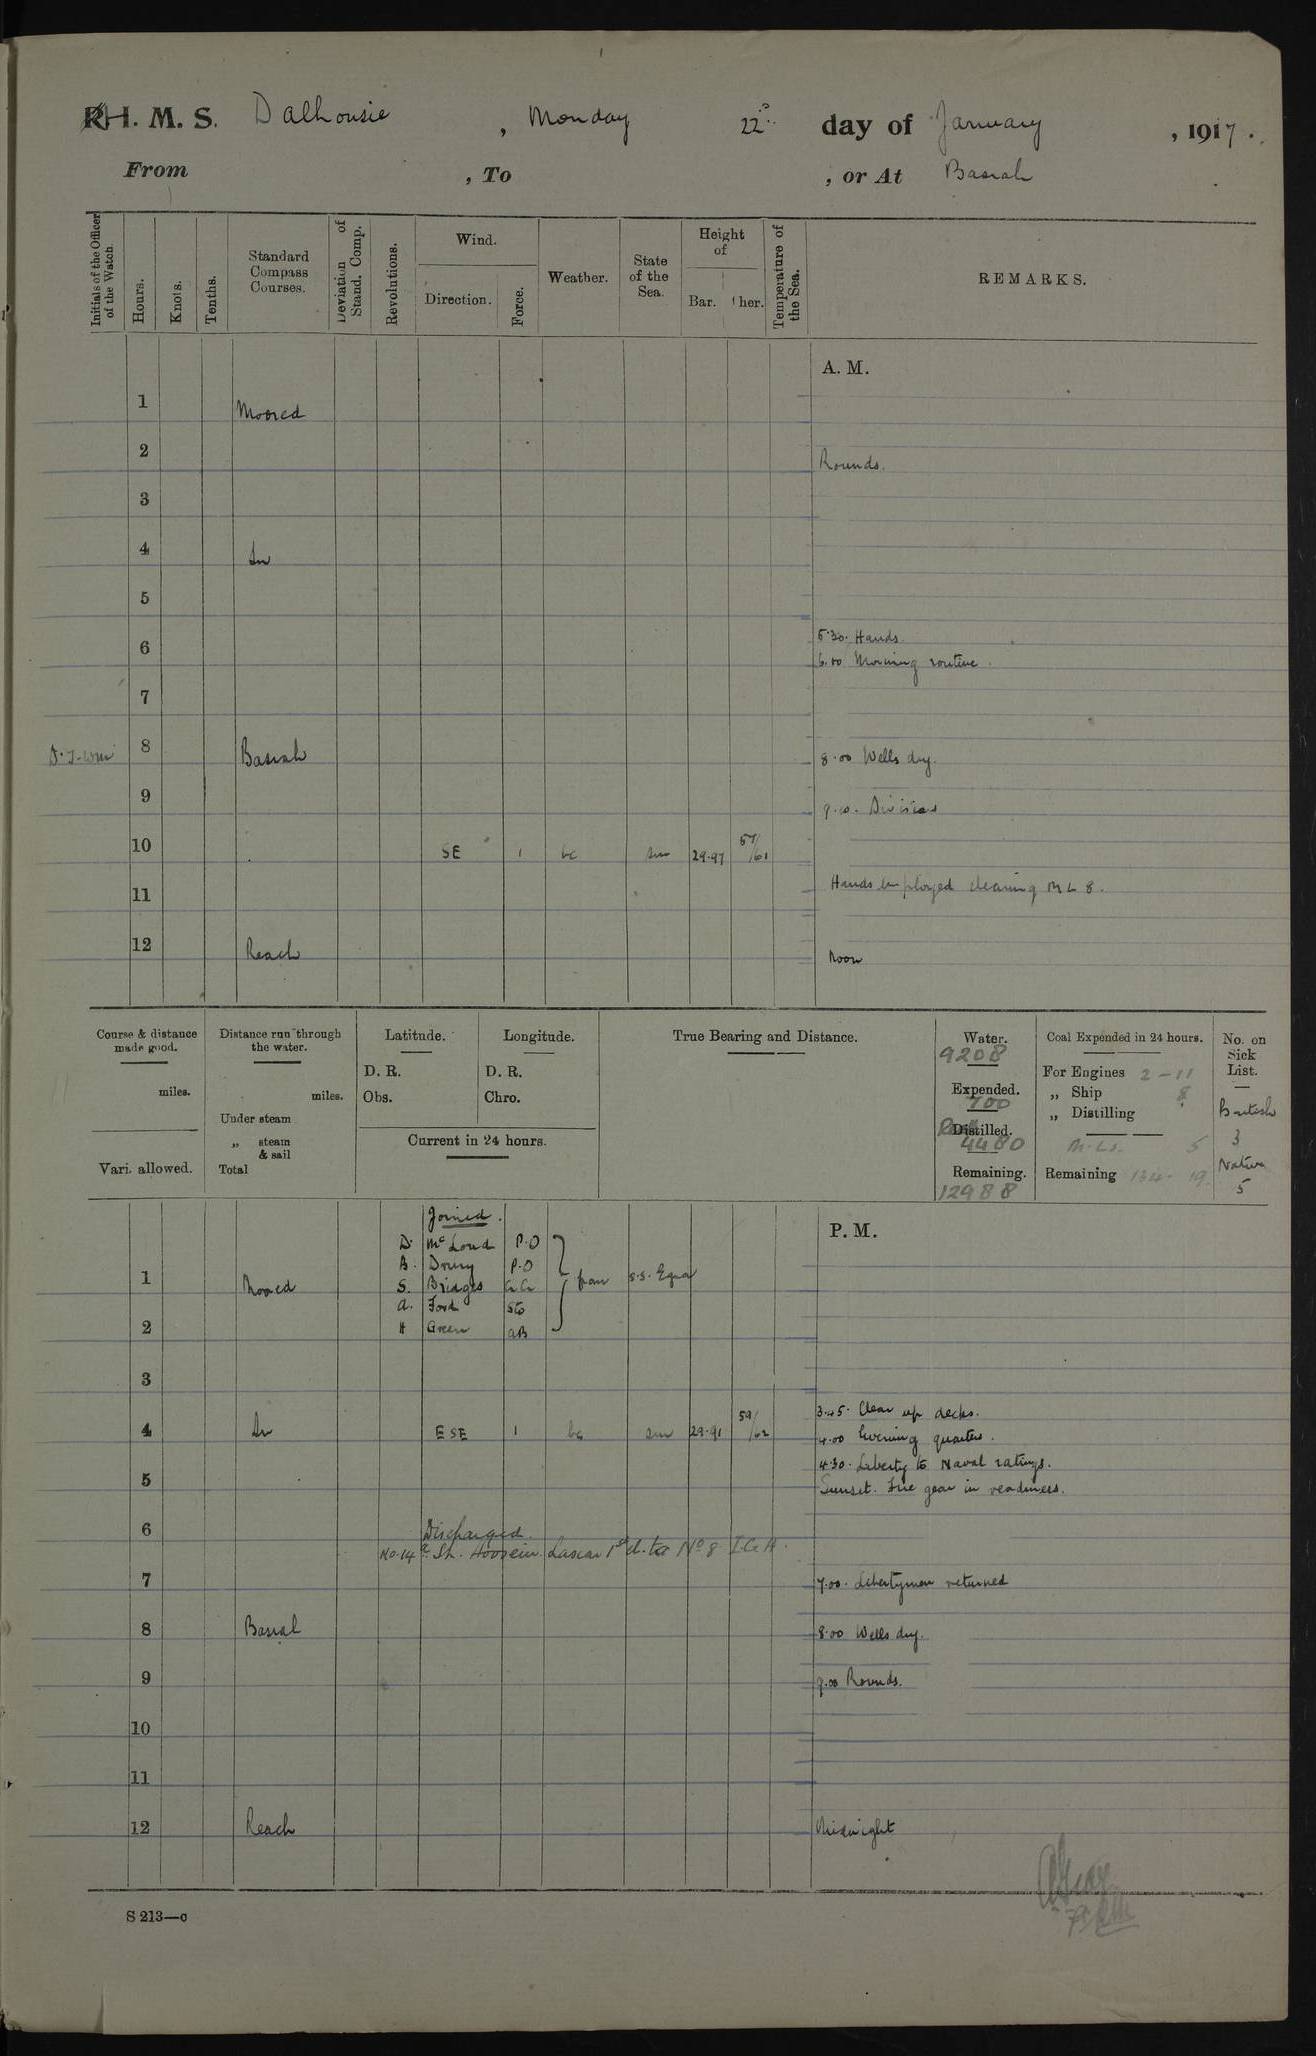 H. M. S. Dalhousie, Monday 22 day of January, 1917.
From , To , or At Basrah
Initials of the Officer of the Watch.
Hours.
Knots.
Tenths.
Standard Compass Courses.
Deviation of Stand. Comp.
Revolutions.
Wind.
Direction.
Force.
Weather.
State of the Sea.
Height of
Bar.
Ther.
Temperature of the Sea.
REMARKS.
A. M.
1 Moored
2 Rounds.
3
4 In
5
5.30. Hands.
6
6.00 Morning routine.
7
8 Basrah 8.00 Wells dry.
9 9.0. Divisions
10 SE 1 bc sm 29.97 57/61
11 Hands employed cleaning M L 8.
12 Reach Noon
Course & distance made good.
miles.
Vari. allowed.
Distance run through the water.
miles.
Under steam
„ steam & sail
Total
Latitude.
D. R.
Obs.
Longitude.
D. R.
Chro.
Current in 24 hours.
True Bearing and Distance.
Water.
9208
Expended.
700
Distilled.
4480
Remaining.
12988
Coal Expended in 24 hours.
For Engines 2 - 11
„ Ship 8
„ Distilling
M. Ls. 5
Remaining 134 - 19
No. on Sick List.
British
3
Native
5
P. M.
Joined.
D. McLoud P.O
Drury P.O
1 Moored
S. Bridges from s.s.
A. Ford Sto
2
H Green AB
3
3.45. Clear up decks.
4 In ESE 1 bc sm 29.91 59/62
4.00 Evening quarters.
4.30. Liberty to Naval ratings.
5
Sunset. Fire gear in readiness.
6
Discharged.
No. 14 Sh. Hoosein Lascar 1st cl. to No 8 I.G.H.
7 7.00. Libertymen returned
8 Basrah 8.00 Wells dry.
9 9.00 Rounds.
10
11
12 Reach Midnight
S 213—c